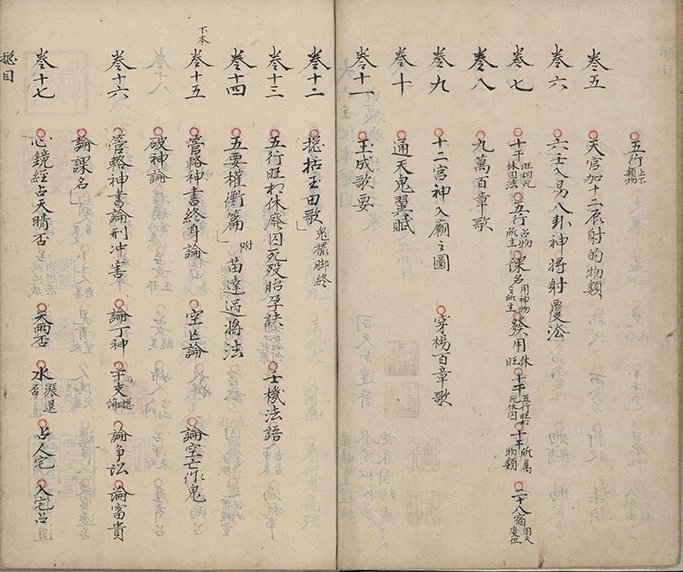 五行上下類物
卷五 天官加十二辰射的物類
卷六 六壬入易八卦神將射覆法
卷七 十干旺相死休囚法 五行占物所主 課名用神物所主 發用休旺 十干五行旺相死休囚 十干所屬物類 二十八宿周天度位
卷八 九萬百章歌
卷九 十二宮神入廟之圖 穿楊百章歌
卷十 通天鬼翼賦
卷十一 玉成歌要
卷十二 總括玉田歌 鬼撮脚終
卷十三 五行旺相休廢囚死歿胎孕訣 壬機法語
卷十四 五要權衡篇 附 苗達過將法
下本
卷十五 管輅神書終身論 空亡論 論空亡作鬼
破神論
卷十六 管輅神書論刑冲害 論丁神 干支總論 論爭訟 論富貴
論課名
卷十七 心鏡經占天晴否 天雨否 水漲退否 占人宅 入宅占道
總目